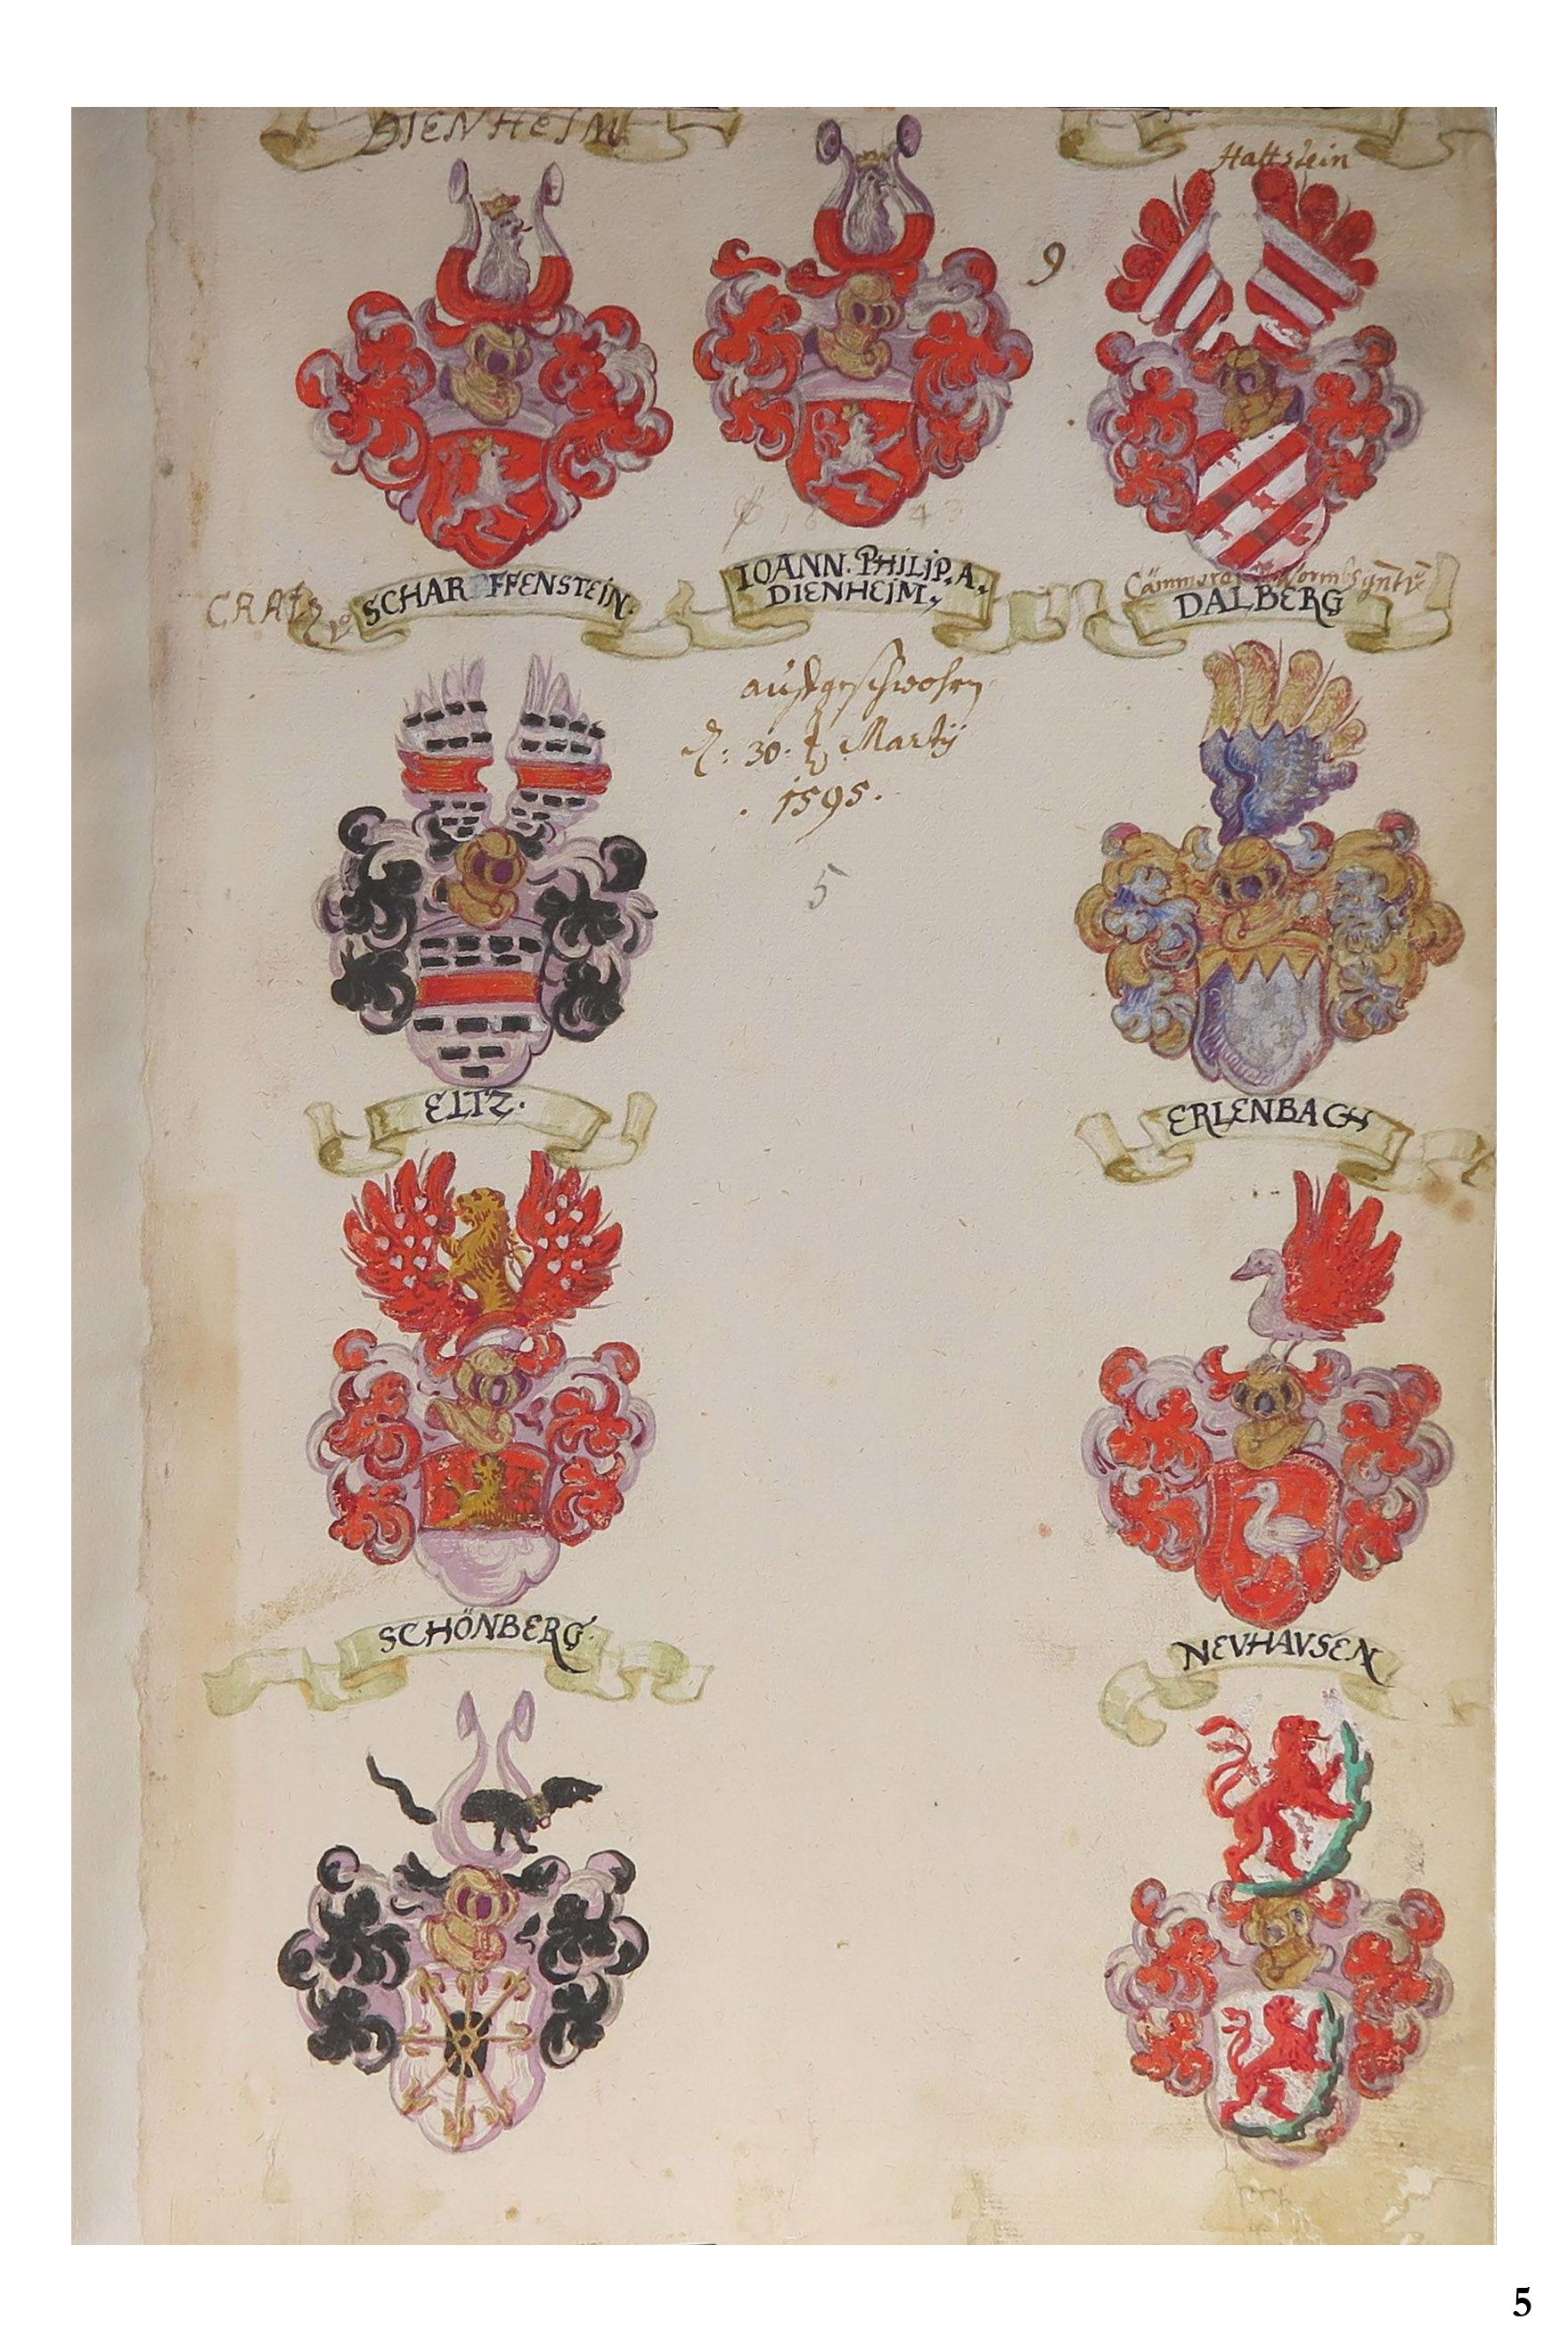 DIENHEIM
Hattstein
9
CRATZ v SCHARFFENSTEIN.
IOANN. PHILIP. A.
DIENHEIM.
Cämmerer Wormbs gnt
DALBERG
auffgeschworen
d: 30: Martij
. 1595.
5
ELTZ.
ERLENBACH
SCHÖNBERG.
NEVHAVSEN
5